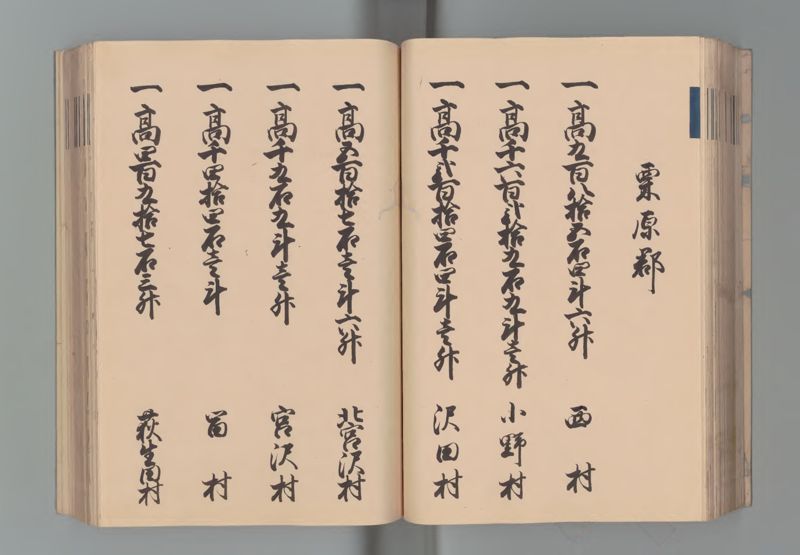 栗原郡
一高九百八拾五石四斗六升 西村
一高千六百弐拾九石九斗壱升 小野村
一高千弐百拾四石四斗壱升 沢田村
一高五百拾七石壱斗六升 北宮沢村
一高千九石九斗壱升 宮沢村
一高千四拾四石壱斗 富村
一高四百九拾七石三升 荻生田村